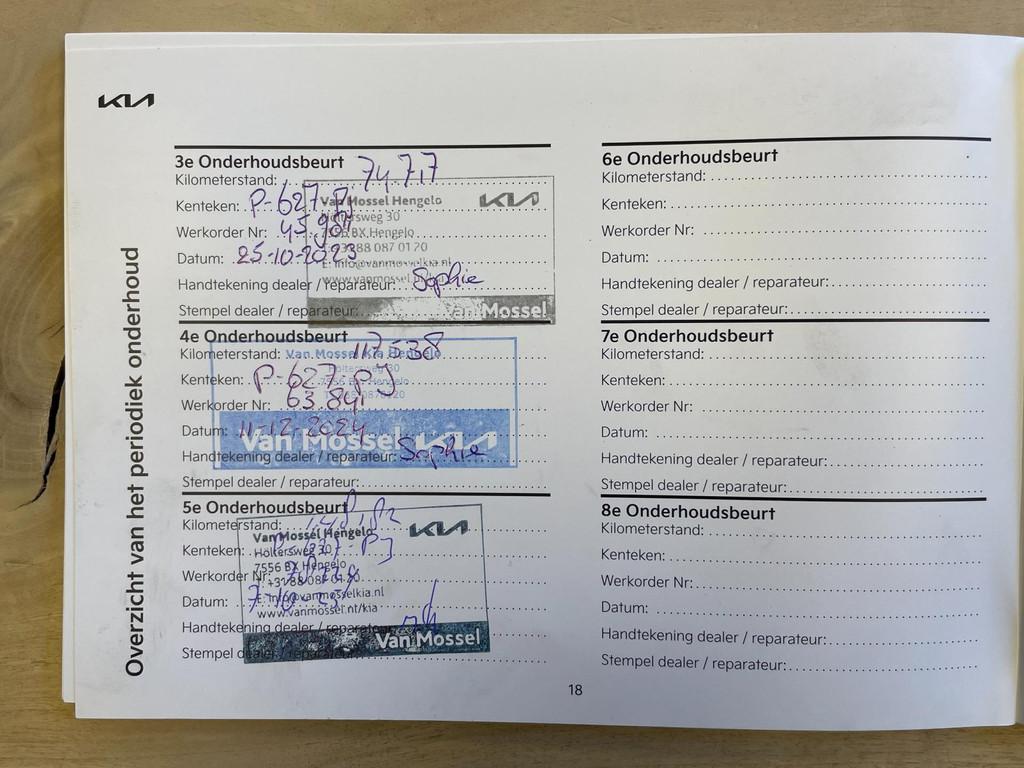 KIA
Overzicht van het periodiek onderhoud
3e Onderhoudsbeurt
Kilometerstand: 74.717
Kenteken: P-627-PJ
Werkorder Nr:
Datum: 25-10-2023
Handtekening dealer / reparateur: Sophie
Stempel dealer / reparateur:
Van Mossel Hengelo KIA
Holtersweg 30
7556 BX Hengelo
T: +31 88 087 01 20
E: info@vanmosselkia.nl
www.vanmossel.nl/kia
Van Mossel
4e Onderhoudsbeurt
Kilometerstand: 117538
Kenteken: P-627-PJ
Werkorder Nr:
Datum: 11-12-2024
Handtekening dealer / reparateur: Sophie
Stempel dealer / reparateur:
Van Mossel Kia Hengelo
Holtersweg 30
7556 BX Hengelo
Van Mossel KIA
5e Onderhoudsbeurt
Kilometerstand:
Kenteken: P-627-PJ
Werkorder Nr:
Datum:
Handtekening dealer / reparateur:
Stempel dealer / reparateur:
Van Mossel Hengelo KIA
Holtersweg 30
7556 BX Hengelo
T: +31 88 087 01 20
E: info@vanmosselkia.nl
www.vanmossel.nl/kia
Van Mossel
6e Onderhoudsbeurt
Kilometerstand:
Kenteken:
Werkorder Nr:
Datum:
Handtekening dealer / reparateur:
Stempel dealer / reparateur:
7e Onderhoudsbeurt
Kilometerstand:
Kenteken:
Werkorder Nr:
Datum:
Handtekening dealer / reparateur:
Stempel dealer / reparateur:
8e Onderhoudsbeurt
Kilometerstand:
Kenteken:
Werkorder Nr:
Datum:
Handtekening dealer / reparateur:
Stempel dealer / reparateur:
18